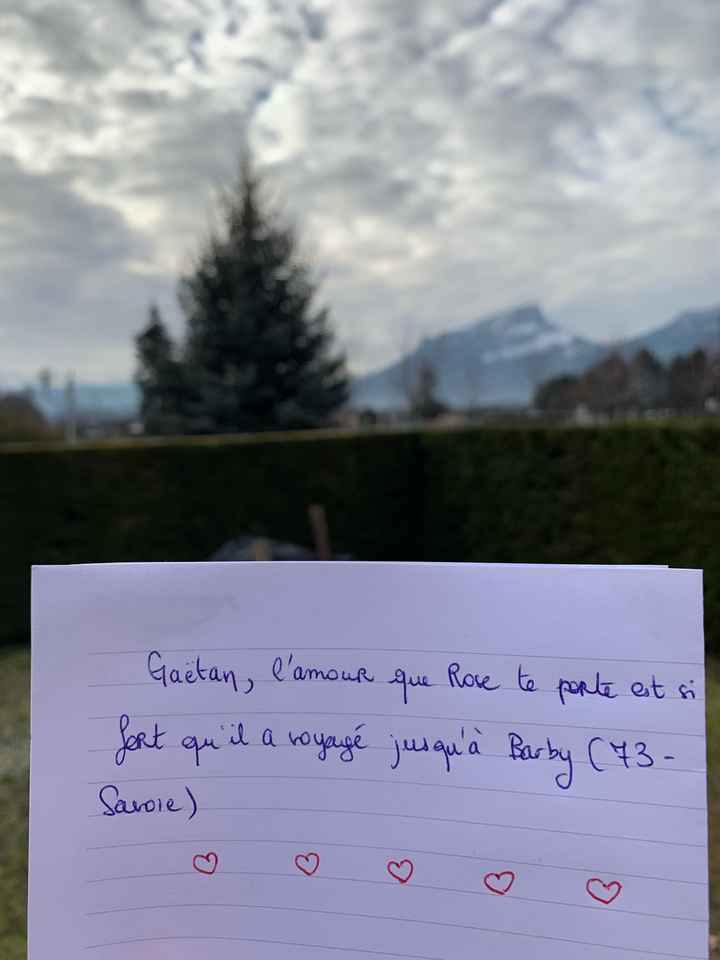 Gaëtan, l'amour que Rose te porte est si
fort qu'il a voyagé jusqu'à Barby (73-
Savoie)